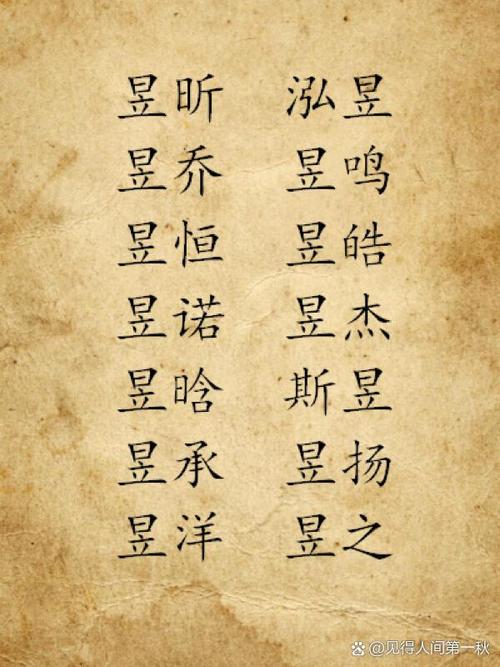 昱昕 泓昱
昱乔 昱鸣
昱恒 昱皓
昱诺 昱杰
昱晗 斯昱
昱承 昱扬
昱洋 昱之
@见得人间第一秋